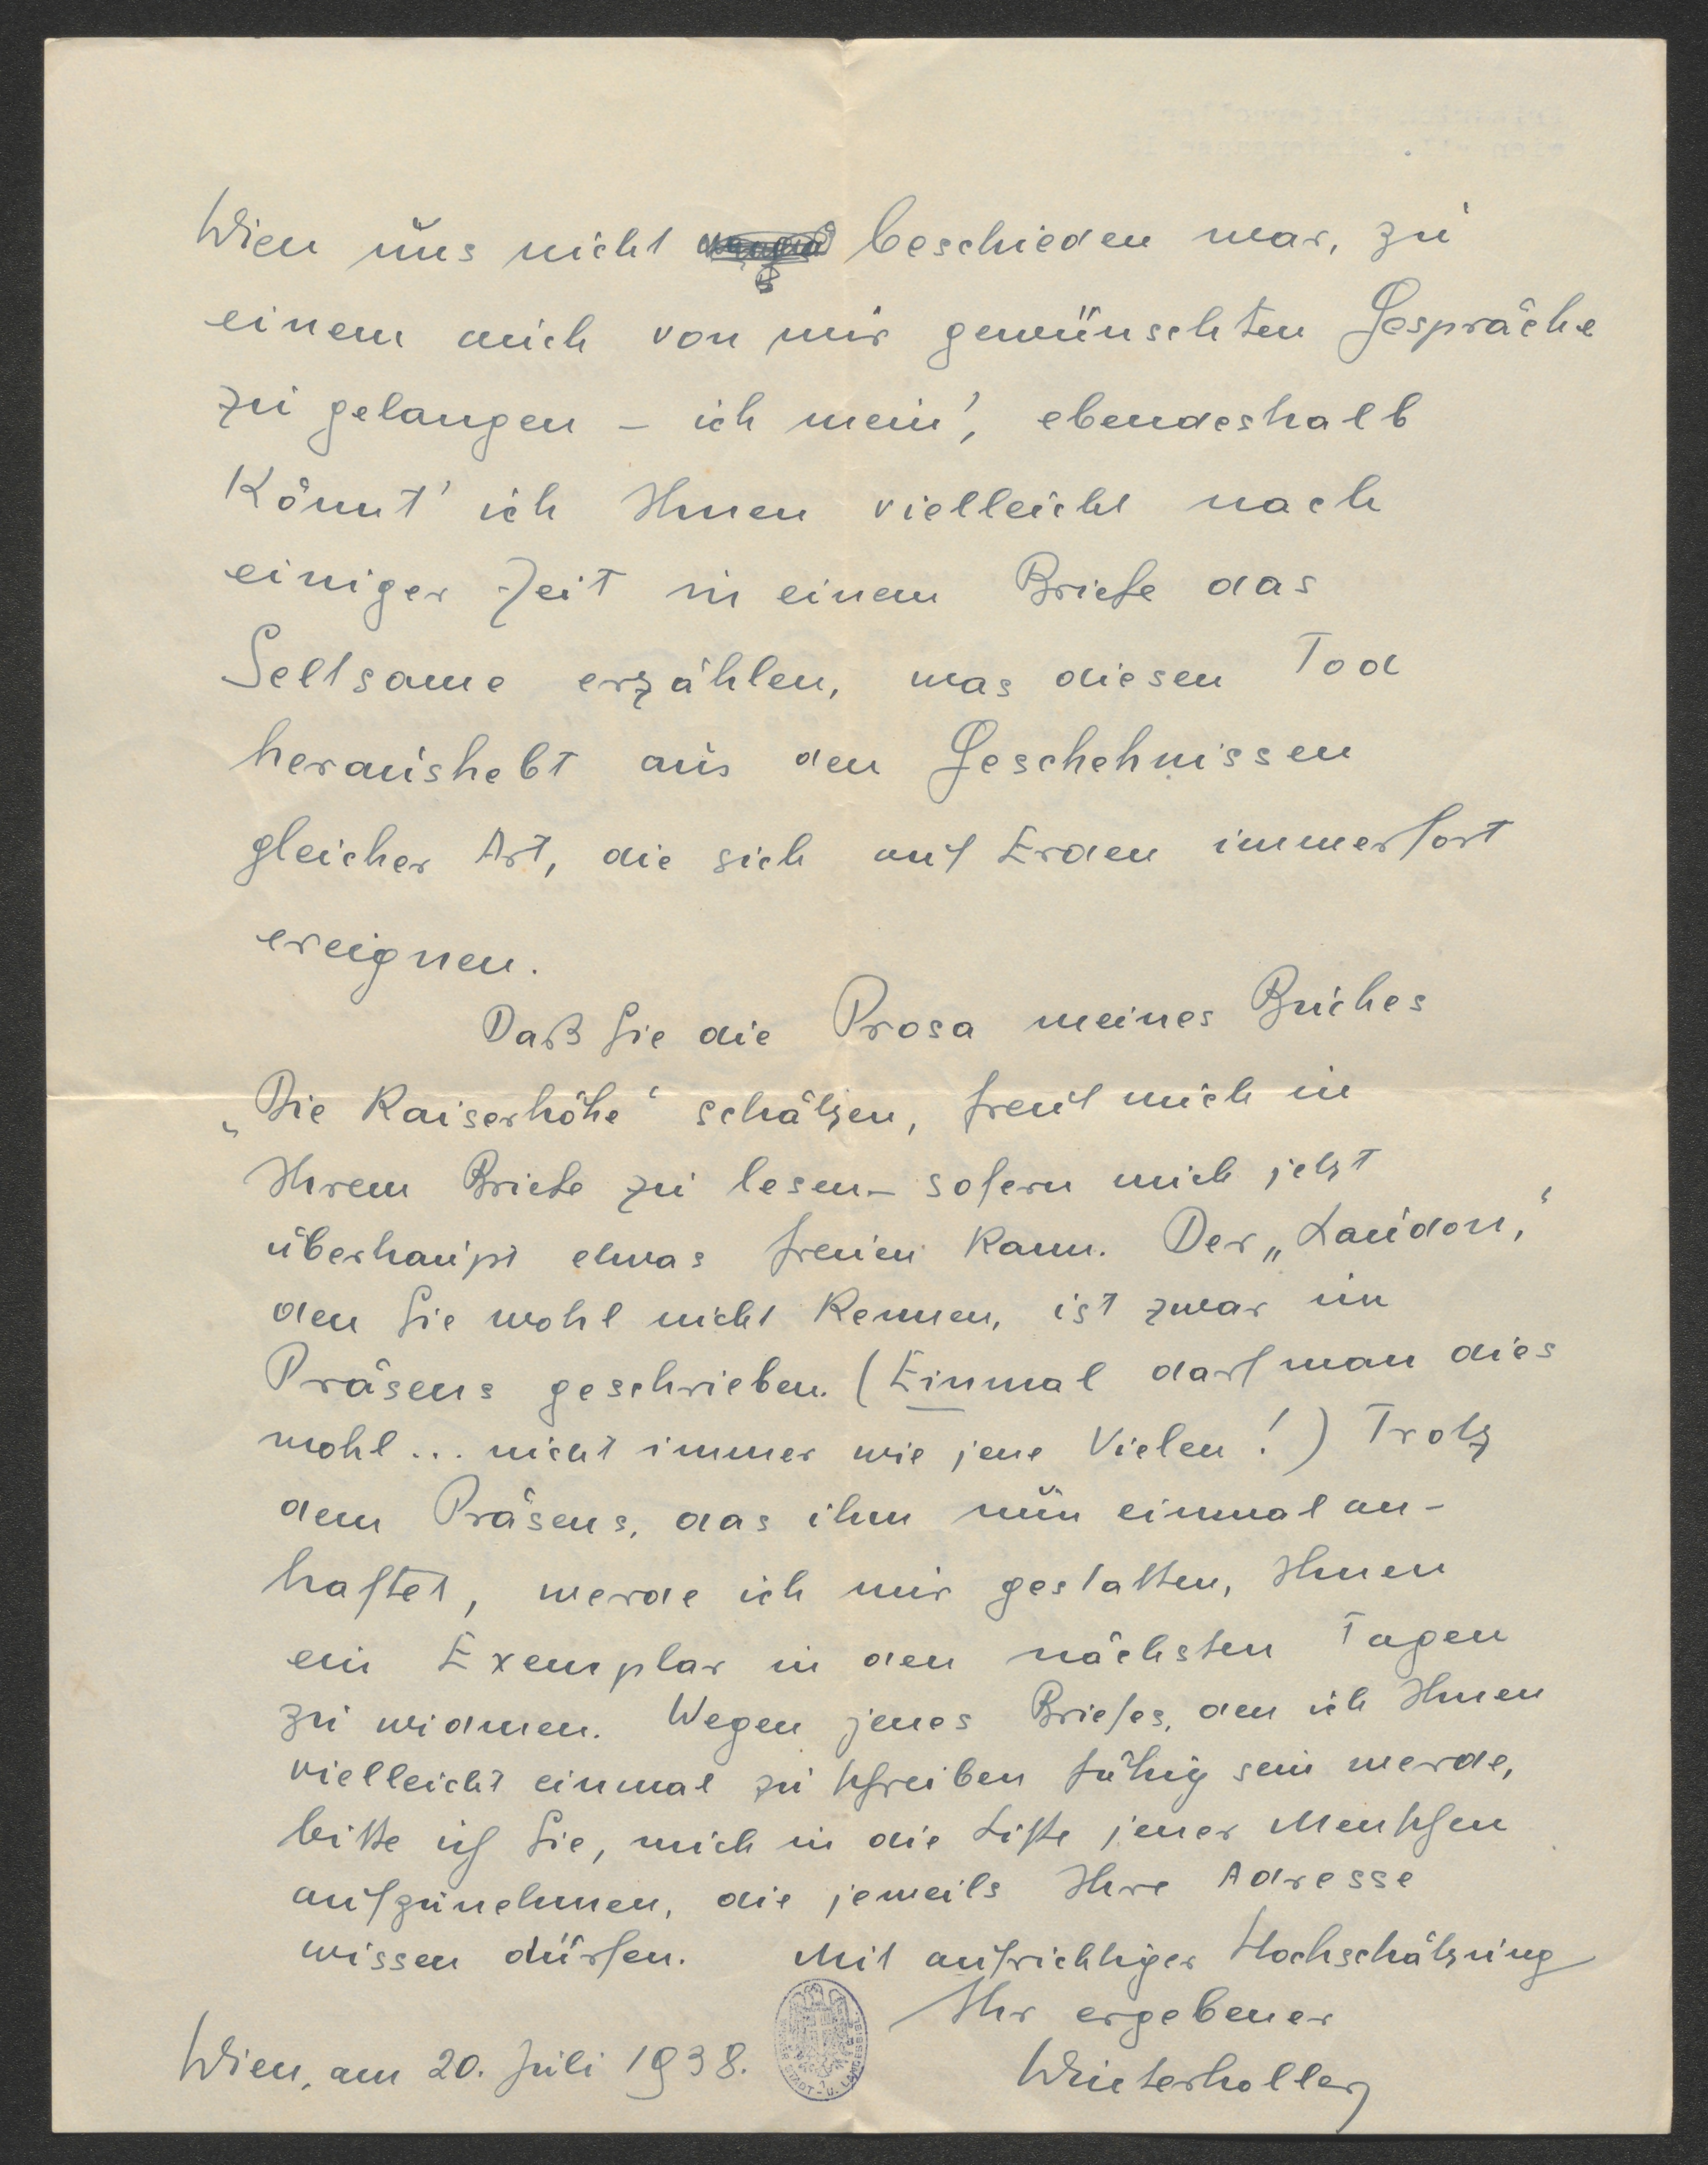 Wien uns nicht beschieden war, zu
einem auch von mir gewünschten Gespräche
zu gelangen – ich mein', ebendeshalb
könnt' ich Ihnen vielleicht nach
einiger Zeit in einem Briefe das
Seltsame erzählen, was diesen Tod
heraushebt aus den Geschehnissen
gleicher Art, die sich auf Erden immerfort
ereignen.
Daß Sie die Prosa meines Buches
„Die Kaiserhöhe“ schätzen, freut mich in
Ihrem Briefe zu lesen – sofern mich jetzt
überhaupt etwas freuen kann. Der „Laudon,“
den Sie wohl nicht kennen, ist zwar im
Präsens geschrieben. (Einmal darf man dies
wohl... nicht immer wie jene Vielen!) Trotz
dem Präsens, das ihm nun einmal an-
haftet, werde ich mir gestatten, Ihnen
ein Exemplar in den nächsten Tagen
zu widmen. Wegen jenes Briefes, den ich Ihnen
vielleicht einmal zu schreiben fähig sein werde,
bitte ich Sie, mich in die Liste jener Menschen
aufzunehmen, die jeweils Ihre Adresse
wissen dürfen. Mit aufrichtiger Hochschätzung
Ihr ergebener
Wien, am 20. Juli 1938. Winterholler